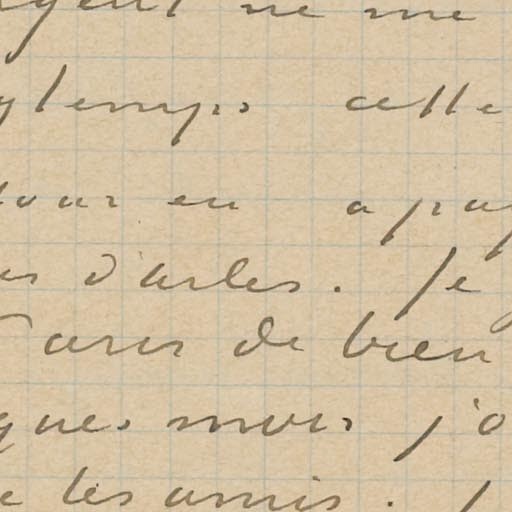 ne me
temps cette
tour en a pay
d'arles. Je
Paris de bien
ques mois j'o
les amis.